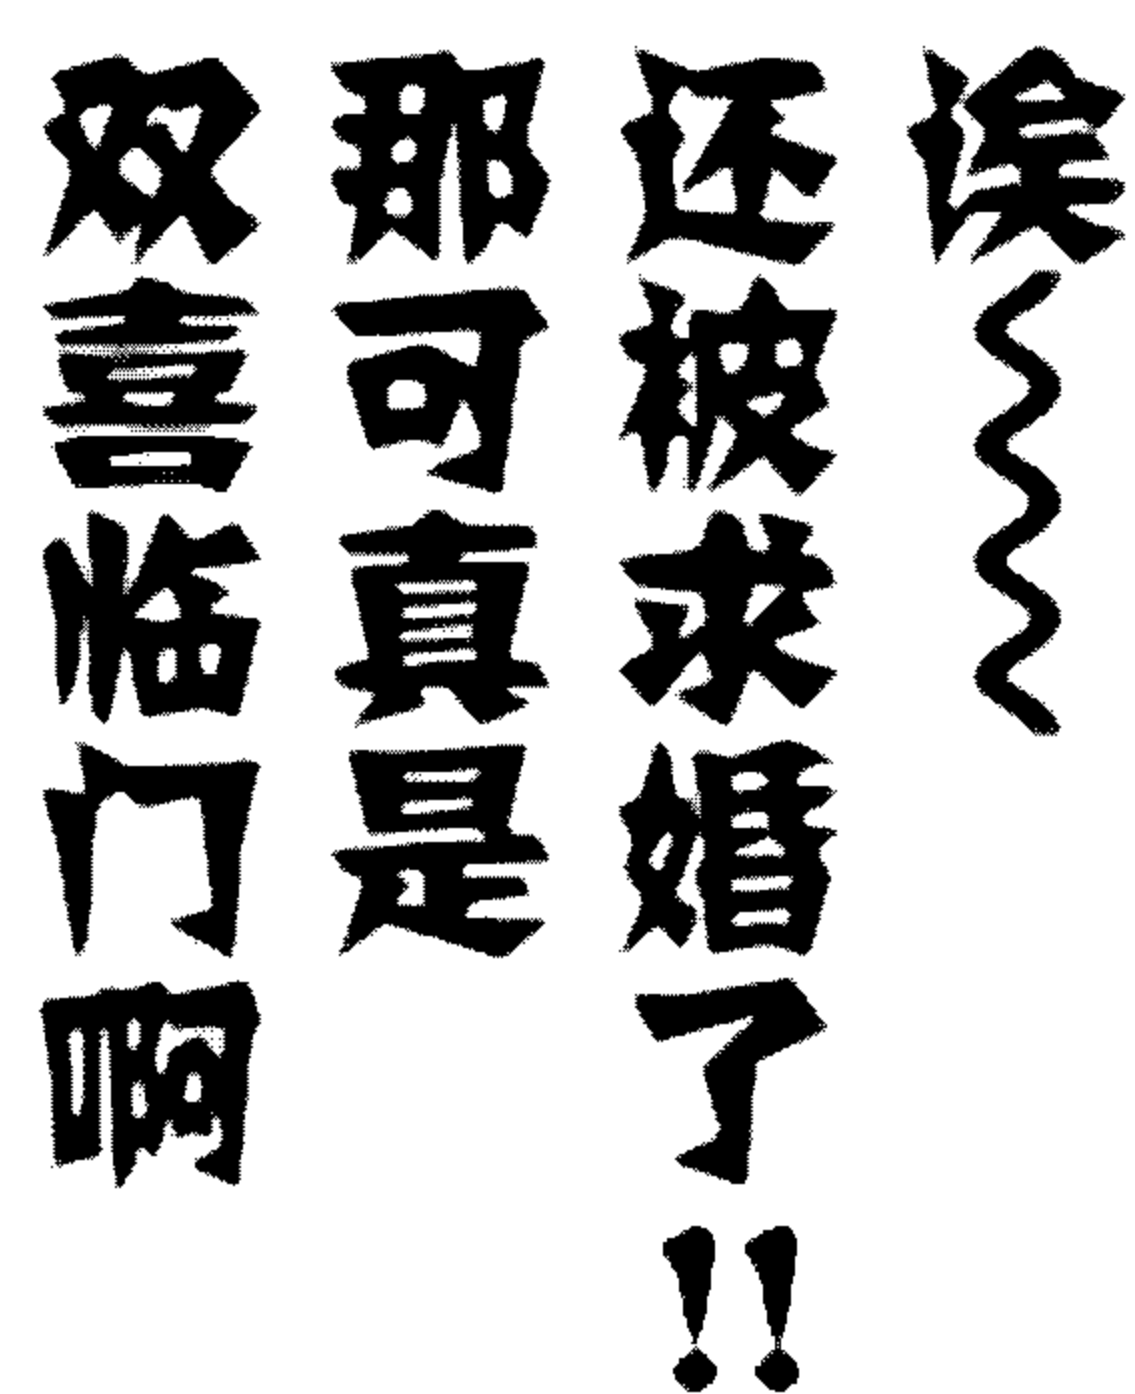 诶～
还被求婚了!!
那可真是
双喜临门啊